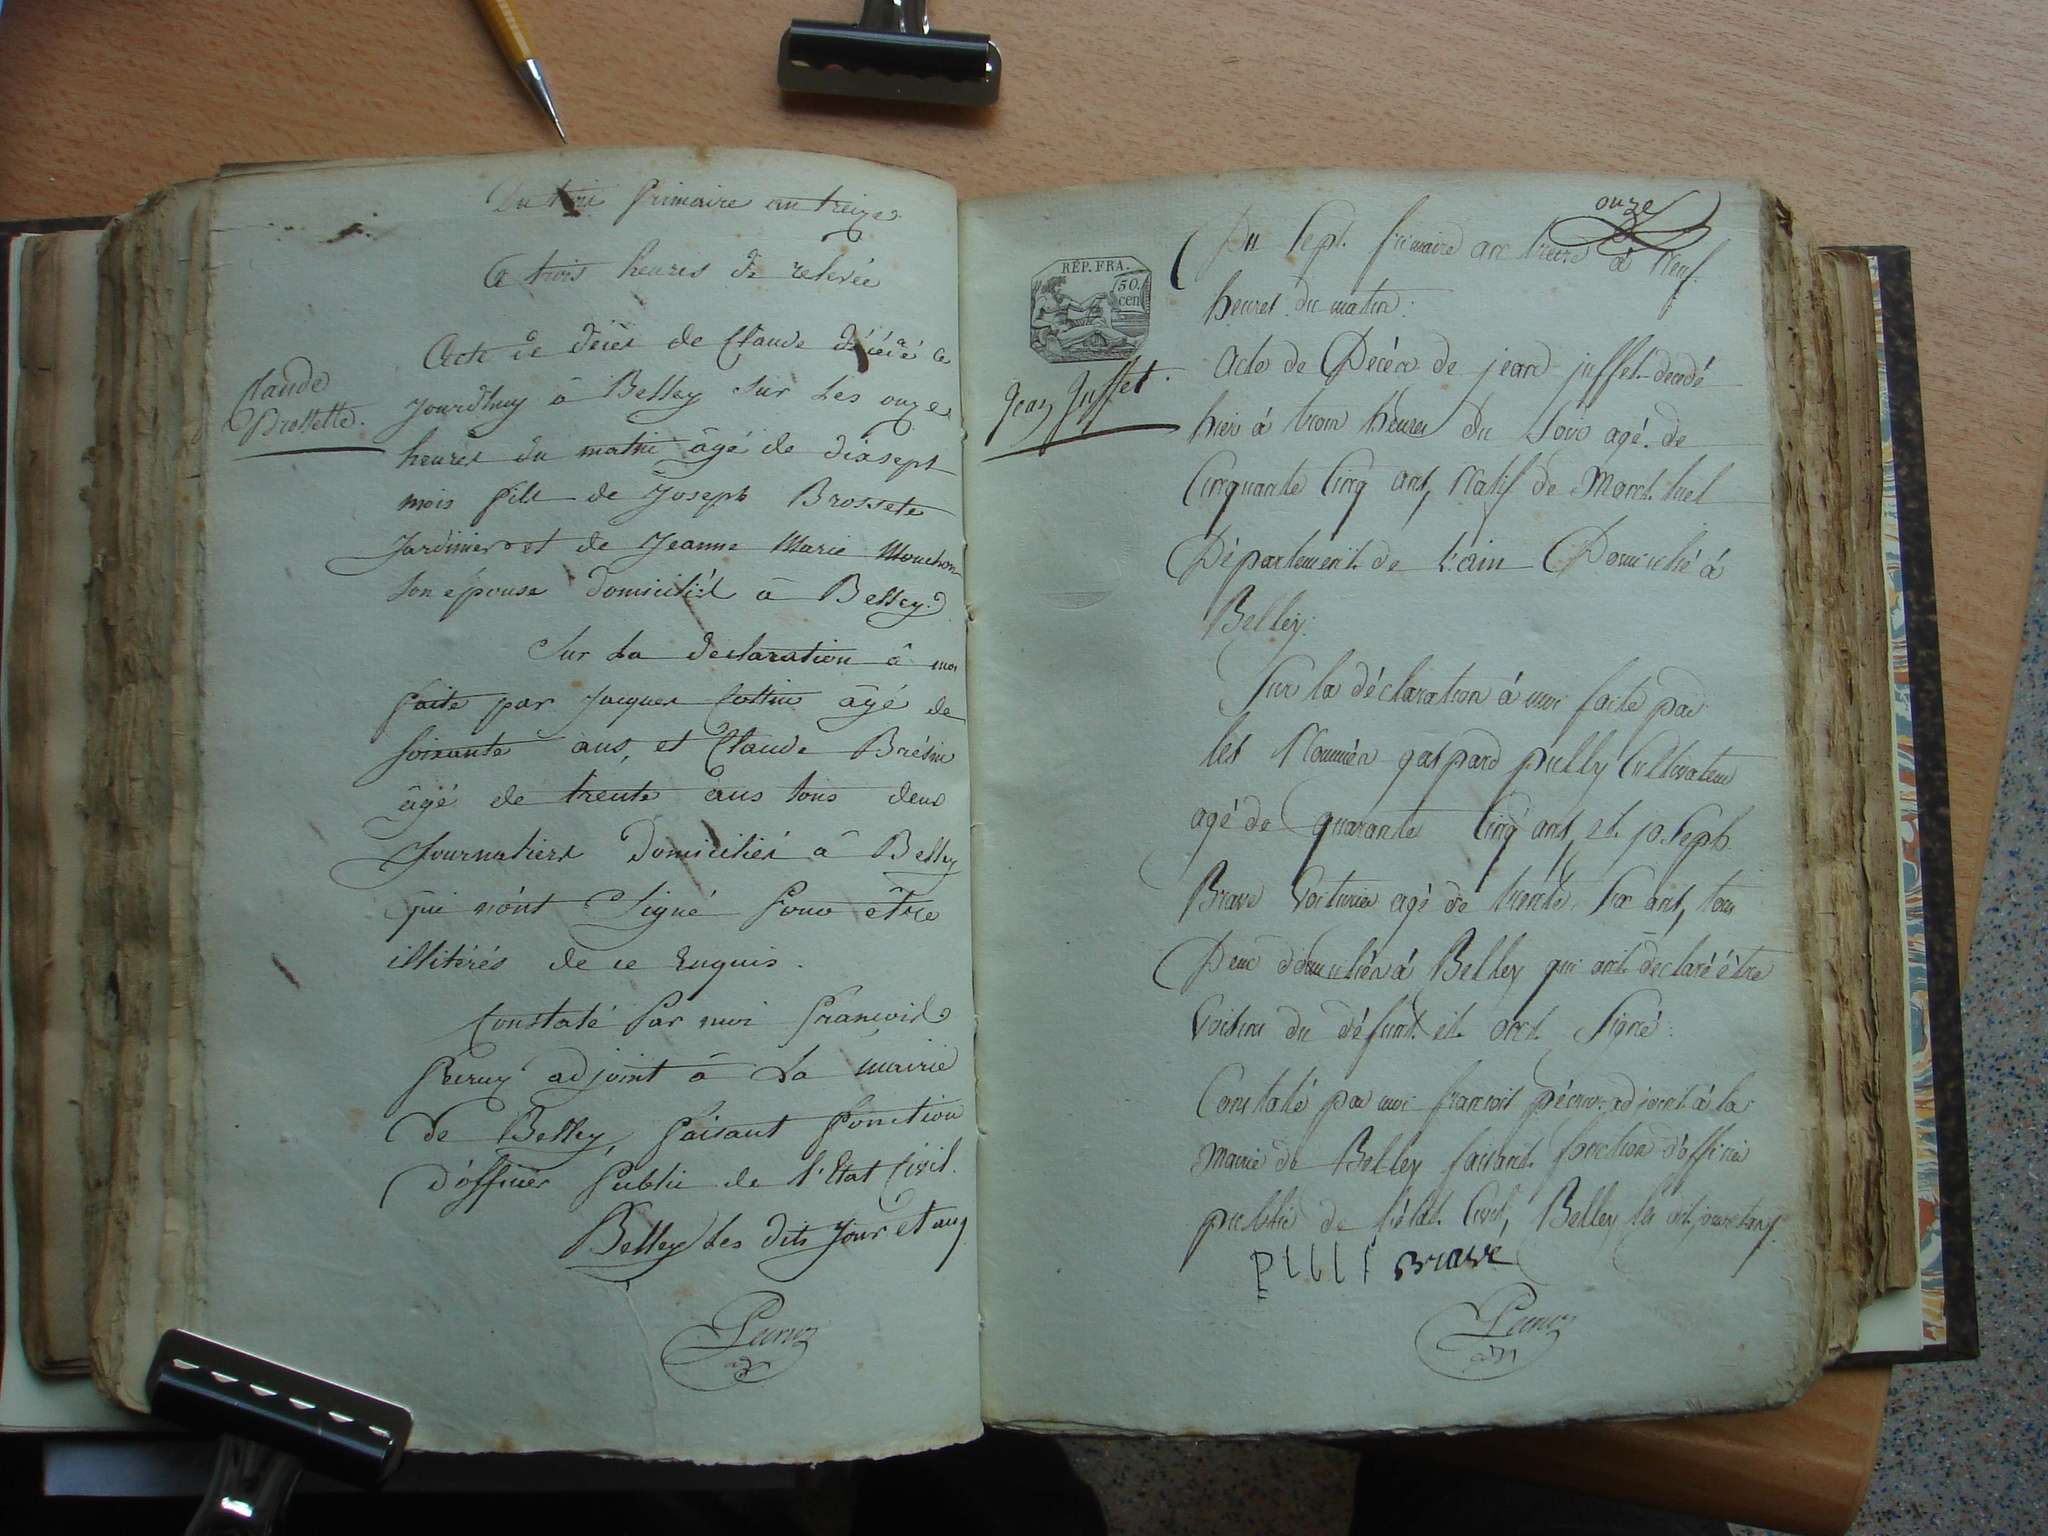 Du trois frimaire an treize
A trois heures de relevée
Claude
Brossette.
Acte de décès de Claude décédé ce
jourdhuy â Belley sur les onze
heures du matin âgé de dixsept
mois fils de Joseph Brossete
Jardinier et de Jeanne Marie Mouchon
son épouse domiciliés â Belley.
Sur la declaration â moi
faite par Jacques Cottin âgé de
soixante ans, et Claude Brésin
âgé de trente ans tous deux
Journaliers domiciliés â Belley
qui n'ont signé pour être
illitérés de ce enquis.
Constaté par moi françois
Pecruz adjoint â la mairie
de Belley, faisant fonction
d'officier public de l'Etat Civil.
Belley les dits jour et an,
onze
Du sept frimaire an treize à neuf
heures du matin.
RÉP. FRA.
50.
cen
Jean Juffet.
acte de Décès de jean juffet decedé
hier à trois heures du soir agé de
Cinquante Cinq ans, Natif de Mont luel
Département de L'ain Domicilié à
Belley.
Sur la déclaration à moi faite par
les Nommés gaspard pully Cultivateur
agé de quarante Cinq ans, et joseph
Brave Voiturier agé de trente six ans, tous
Deux domiciliés à Belley qui ont declaré être
Voisins du défunt et ont signé.
Constaté par moi françois adjoint à la
Mairie de Belley faisant fonction d'officier
public de l'état Civil, Belley les dit jour et an,
Brave